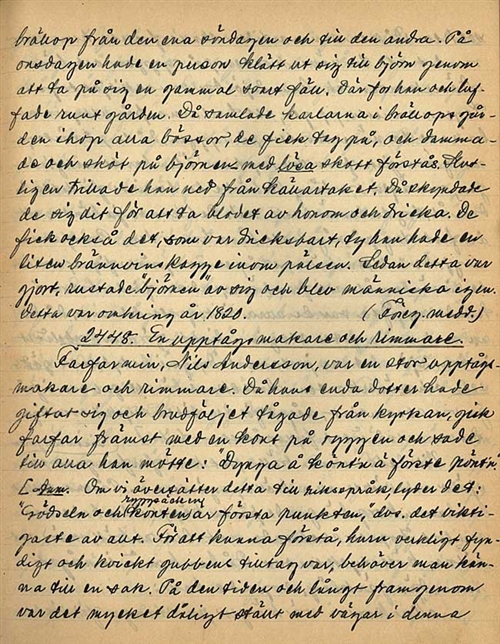 bröllop från den ena söndagen och till den andra. På
onsdagen hade en person klätt ut sig till björn genom
att ta på sig en gammal svart fäll. Där for han och luf-
fade runt gården. Då samlade karlarna i bröllopsgår-
den ihop alla bössor, de fick tag på, och damma-
de och sköt på björnen med lösa skott förstås. Slut-
ligen trillade han ned från källartaket. Då skyndade
de sig dit för att ta blodet av honom och dricka. De
fick också det, som var drickbart, ty han hade en
liten brännvinskagge inom pälsen. Sedan detta var
gjort, rustade "björnen" av sig och blev människa igen.
Detta var omkring år 1820. (Föreg. medd.)
2448. En upptågsmakare och rimmare.
Farfar min, Nils Andersson, var en stor upptågs-
makare och rimmare. Då hans enda dotter hade
giftat sig och brudföljet tågade från kyrkan, gick
farfar främst med en kont på ryggen och sade
till alla han mötte: "Dynga å köntn ä förste pöntn".
Om vi översätter detta till riksspråk, lyder det:
"Gödseln och konten (ryggsäcken) är första punkten," dvs. det vikti-
gaste av allt. För att kunna förstå, huru verkligt fyn-
digt och kvickt gubbens tilltag var, behöver man kän-
na till en sak. På den tiden och långt framgenom
var det mycket dåligt ställt med vägar i denna